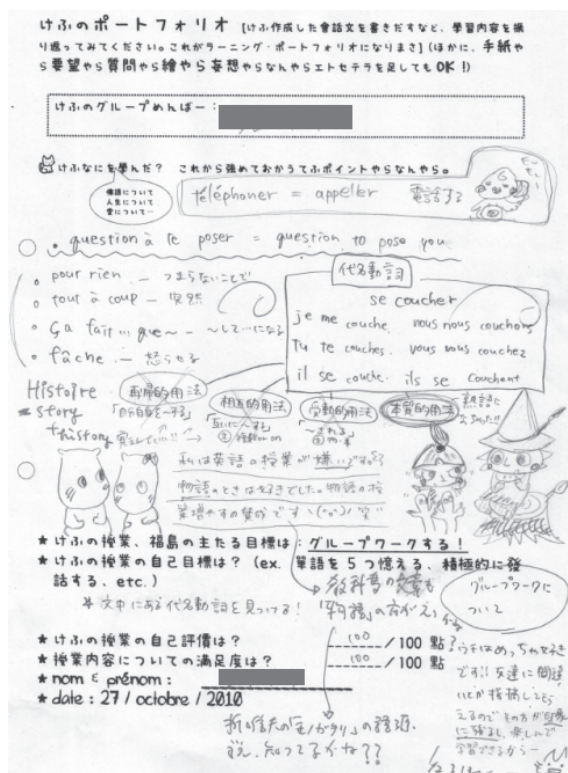 けふのポートフォリオ [けふ作成した會話文を書きだすなど、學習内容を振
り返ってみてください。これがラーニング・ポートフォリオになりまさ](ほかに、手紙や
ら要望やら質問やら繪やら妄想やらなんやらエトセテラを足してもOK!)
けふのグループめんばー:
けふなにを學んだ? これから強めておかうてふポイントやらなんやら。
佛語について
人生について
愛について…
téléphoner = appeller 電話する
question à te poser = question to pose you
pour rien — つまらないことで
tout à coup — 突然
Ça fait … que~ — ~して…になる
fâche — 怒らせる
代名動詞
se coucher
je me couche, nous nous couchons
Tu te couches. vous vous couchez
il se couche. ils se couchent
Histoire
story
history
再帰的用法
「自分自身を~する」
相互的用法
受動的用法
本質的用法
私は英語の授業が嫌いです
物語のときは好きでした。物語の授
業増やすの賛成です
★けふの授業、福島の主たる目標は:グループワークする!
★けふの授業の自己目標は? (ex. 單語を5つ憶える、積極的に發
話する、etc.)
*文中にある代名動詞を見つける!
教科書の文章も
「物語」の方がええ
グループワークに
ついて
★けふの授業の自己評價は? 100 /100 點
★授業内容についての滿足度は? 100 /100 點
★nom & prénom :
★date : 27 / octobre / 2010
ウチはめっちゃ好き
です!! 友達に間違
いとか指摘してもら
えるのでその方が印象
に残るし、楽しんで
学習できるから—
折口信夫の「モノガタリ」の語源
説、知ってるかな??